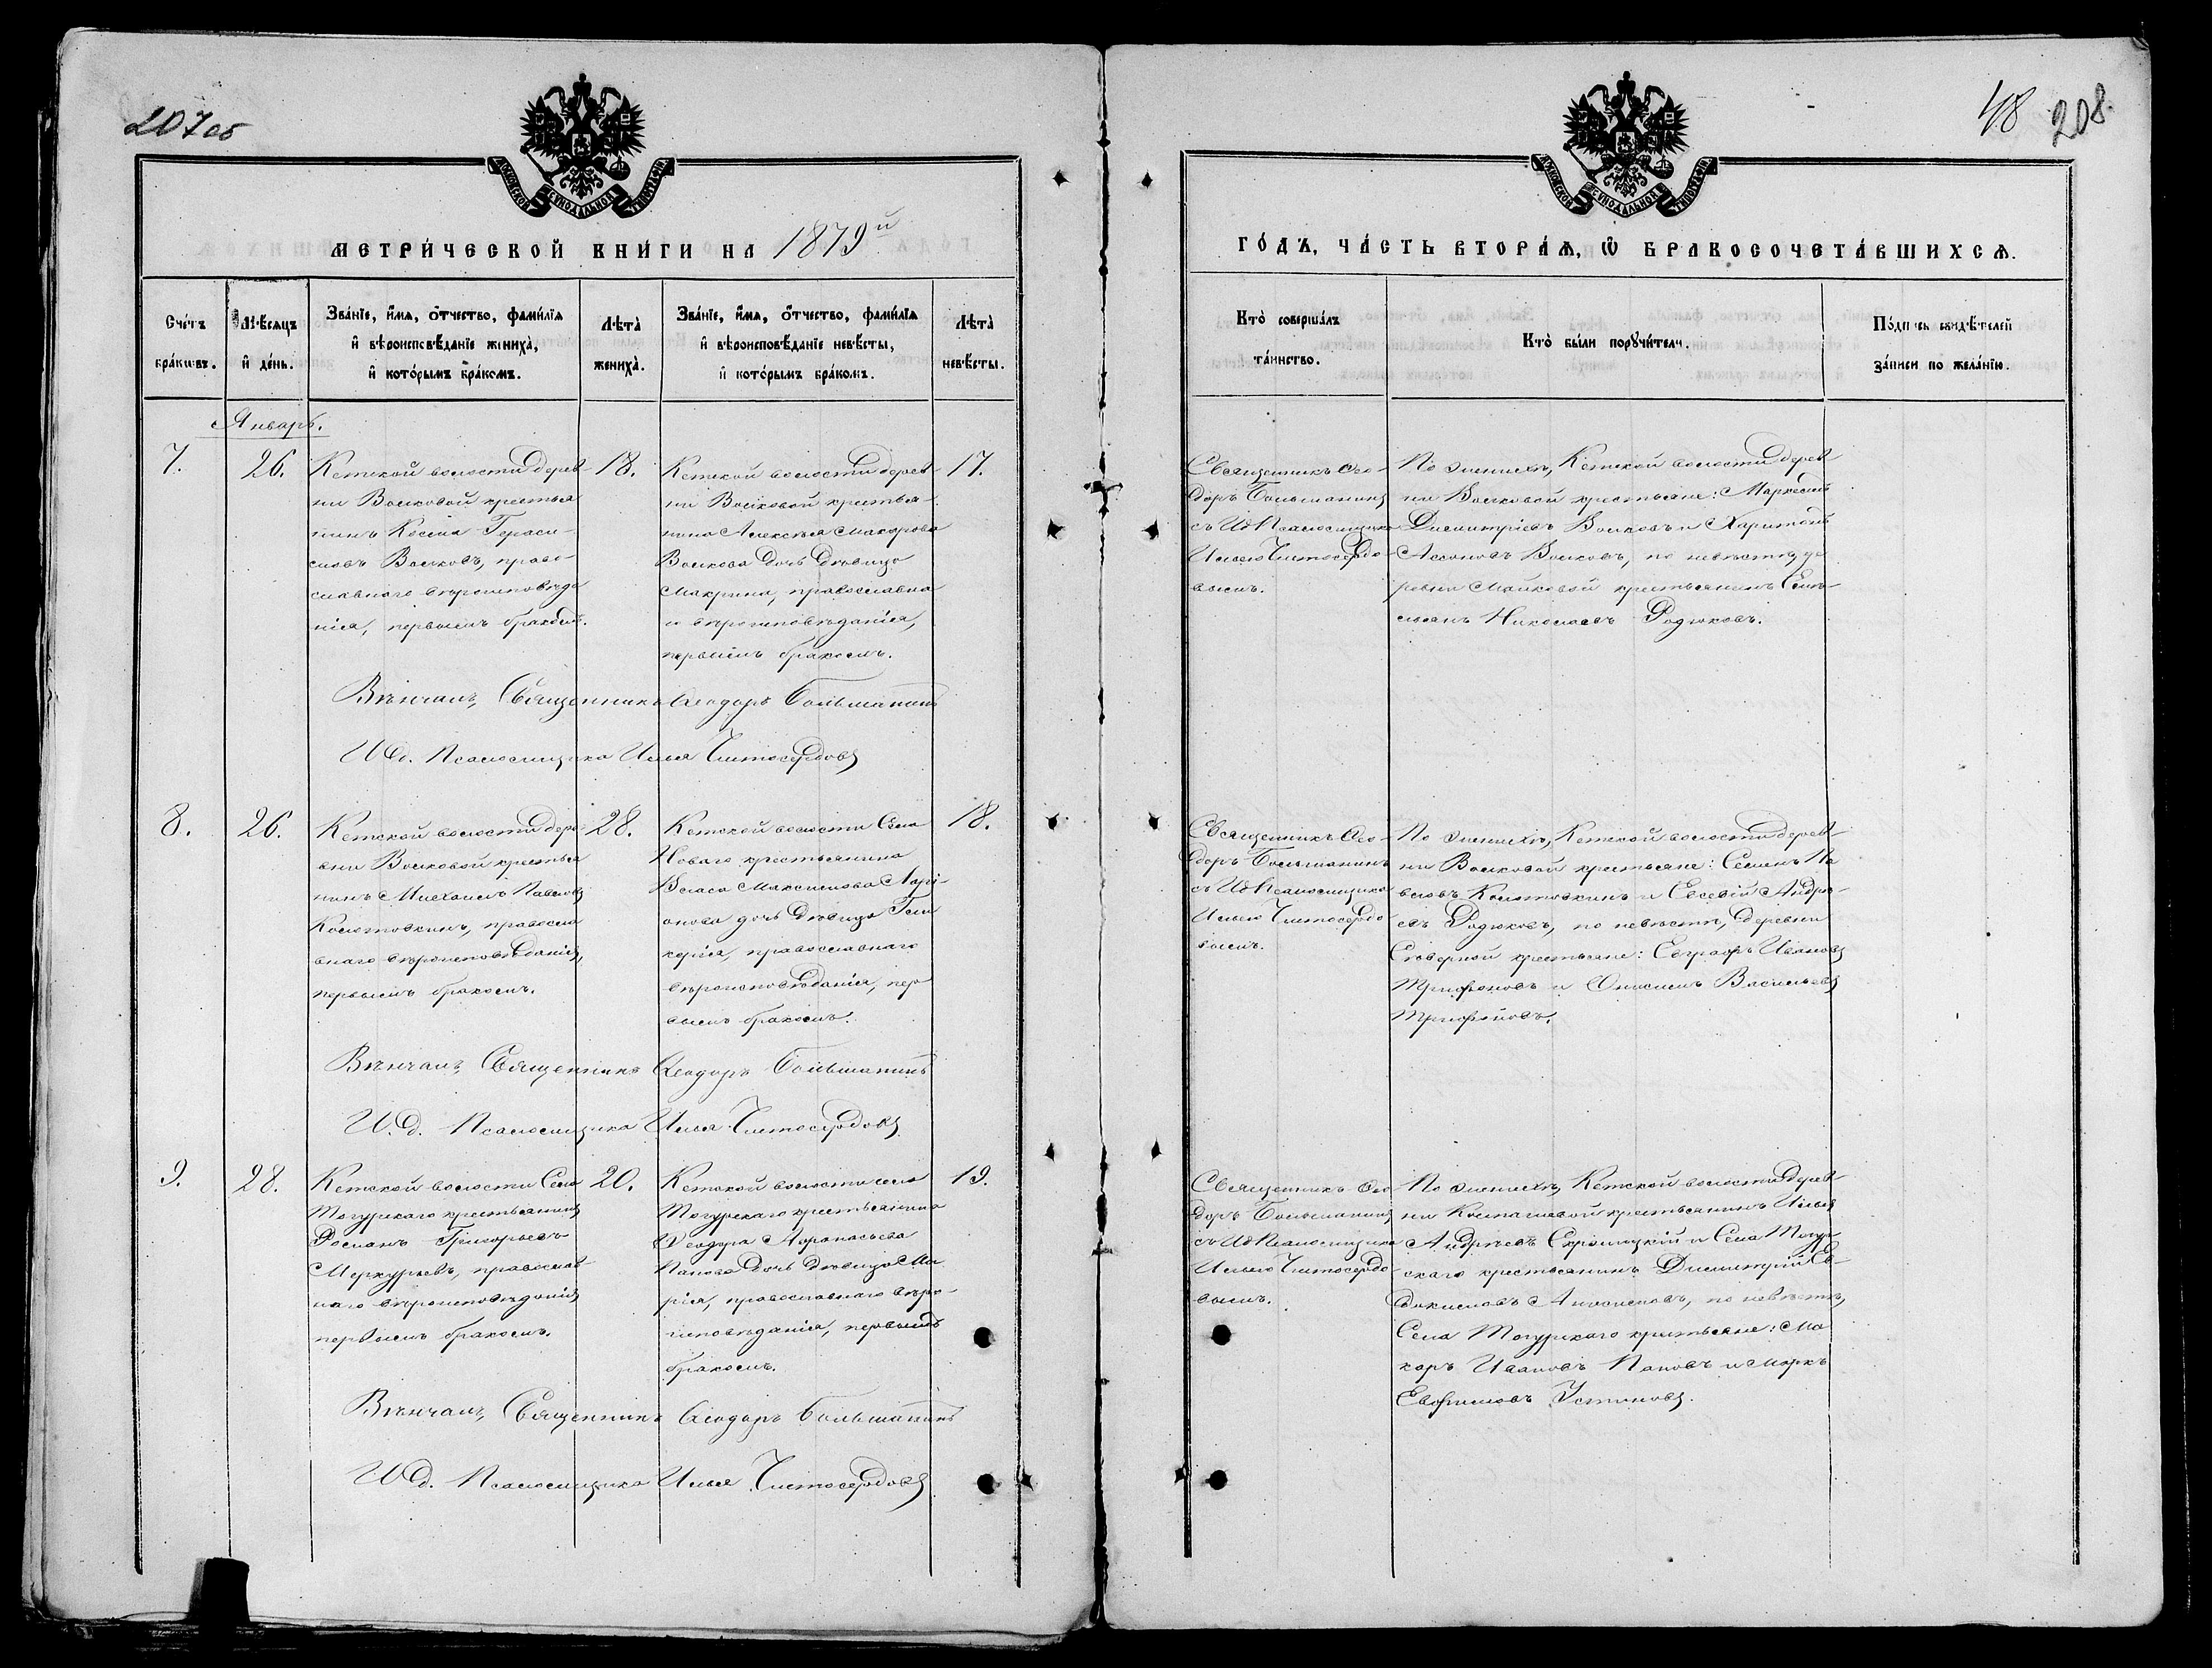 207 об
МОСКОВСКОЙ СѴНОДАЛЬНОЙ ТИПОГРАФІИ
МЕТРИ́ЧЕСКОЙ КНИ́ГИ НА 1879й
Сче́тъ бра́ковъ.
Мѣсяцъ и҆ де́нь.
Зва́нїе, и҆́мя, ѻ҆́тчество, фами́лїя
и҆ вѣроисповѣ́данїе жениха̀,
и҆ кото́рымъ бра́комъ.
Лѣта̀ жениха̀.
Зва́нїе, и҆́мя, ѻ҆́тчество, фами́лїя
и҆ вѣроисповѣ́данїе невѣ́сты,
и҆ кото́рымъ бра́комъ.
Лѣта̀ невѣ́сты.
Январь.
7.
26.
Кетской волости дерев-
ни Волковой крестья
нинъ Косма Гераси-
мовъ Волковъ, право-
славнаго вѣроисповѣда
нія, первымъ бракомъ.
18.
Кетской волости дерев-
ни Волковой крестья-
нина Алексѣя Макарова
Волкова дочь дѣвица
Макрина, православна
го вѣроисповѣданія,
первымъ бракомъ.
17.
Вѣнчалъ, Священникъ Ѳеодоръ Большанинъ
И.д. Псаломщика Илья Чистосердовъ
8.
26.
Кетской волости дере-
вни Волковой крестья
нинъ Михаилъ Павловъ
Колотовкинъ, правосла
внаго вѣроисповѣданія,
первымъ бракомъ.
28.
Кетской волости Села
Новаго крестьянина
Власа Максимова Ларі-
онова дочь дѣвица Гли
керія, православнаго
вѣроисповѣданія, пер
вымъ бракомъ.
18.
Вѣнчалъ, Священникъ Ѳеодоръ Большанинъ
И.д. Псаломщика Илья Чистосердовъ
9.
28.
Кетской волости Села
Тогурскаго крестьянинъ
Романъ Григорьевъ
Меркурьевъ, православ-
наго вѣроисповѣданія
первымъ бракомъ.
20.
Кетской волости села
Тогурскаго крестьянина
Ѳеодора Аѳанасьева
Панова дочь дѣвица Ма
рія, православнаго вѣро-
исповѣданія, первымъ
бракомъ.
19.
Вѣнчалъ, Священникъ Ѳеодоръ Большанинъ
И.д. Псаломщика Илья Чистосердовъ
48 208.
МОСКОВСКОЙ СѴНОДАЛЬНОЙ ТИПОГРАФІИ
ГО́ДЪ, ЧА́СТЬ ВТОРА́Я, Ѽ БРАКОСОЧЕТА́ВШИХСЯ.
Кто̀ соверша́лъ
та́инство.
Кто̀ бы́ли порꙋчи́тели.
По́дпись свидѣ́телей
за́писи по жела́нїю.
Священникъ Ѳео-
доръ Большанинъ
съ И.д. Псаломщика
Ильею Чистосердо-
вымъ.
По женихѣ, Кетской волости дерев-
ни Волковой крестьяне: Маркеллъ
Димитріевъ Волковъ и Харитонъ
Ассоновъ Волковъ, по невѣстѣ, де
ревни Майковой крестьянинъ Еме-
льянъ Николаевъ Родюковъ.
Священникъ Ѳео-
доръ Большанинъ
съ И.д. Псаломщика
Ильею Чистосердо
вымъ.
По женихѣ, Кетской волости дерев-
ни Волковой крестьяне: Семенъ Па
вловъ Колотовкинъ и Евсевій Андре-
евъ Родюковъ, по невѣстѣ, деревни
Сѣверной крестьяне: Евграфъ Ивановъ
Трифоновъ и Онисимъ Васильевъ
Трифоновъ.
Священникъ Ѳео
доръ Большанинъ
съ И.д. Псаломщика
Ильею Чистосердо-
вымъ.
По женихѣ, Кетской волости дерев-
ни Колпашевой крестьянинъ Илья
Андреевъ и Села Тогур-
скаго крестьянинъ Димитрій Ев-
докимовъ, по невѣстѣ,
Села Тогурскаго крестьяне: Ма
каръ Ивановъ Пановъ и Маркъ
Евфимовъ Устиновъ.